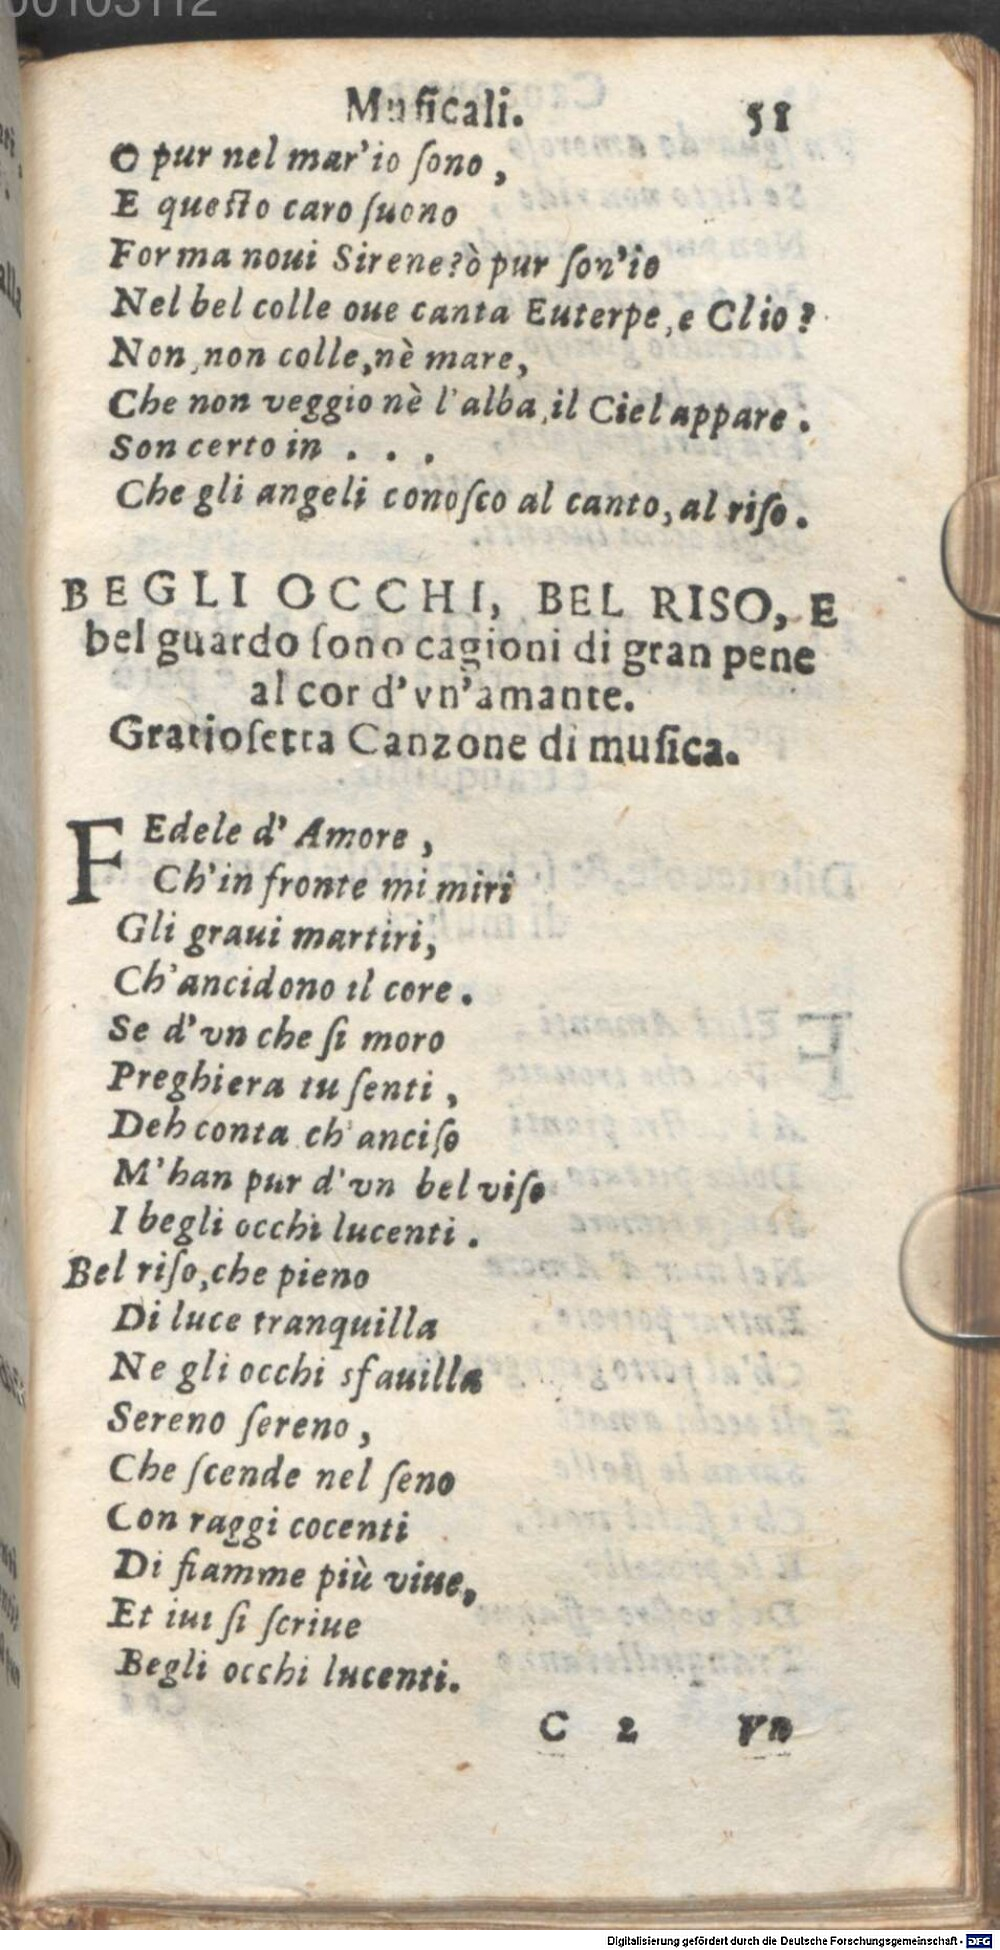 00103112
Muſicali. 51
O pur nel mar'io ſono,
E queſto caro ſuono
Forma noui Sirene? ò pur ſon'io
Nel bel colle oue canta Euterpe, e Clio?
Non, non colle, nè mare,
Che non veggio nè l'alba, il Ciel appare.
Son certo in . . .
Che gli angeli conoſco al canto, al riſo.
BEGLI OCCHI, BEL RISO, E
bel guardo ſono cagioni di gran pene
al cor d'vn'amante.
Gratioſetta Canzone di muſica.
FEdele d'Amore,
Ch'in fronte mi miri
Gli graui martiri,
Ch'ancidono il core.
Se d'vn che ſi moro
Preghiera tu ſenti,
Deh conta ch'anciſo
M'han pur d'vn bel viſo
I begli occhi lucenti.
Bel riſo, che pieno
Di luce tranquilla
Ne gli occhi sfauilla
Sereno ſereno,
Che ſcende nel ſeno
Con raggi cocenti
Di fiamme più viue,
Et iui ſi ſcriue
Begli occhi lucenti.
C 2 Vn
Digitalisierung gefördert durch die Deutsche Forschungsgemeinschaft - DFG